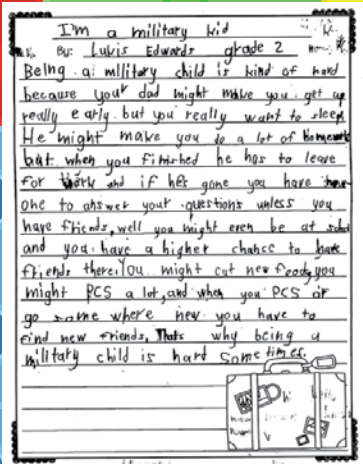 I'm a military kid
By: Lukis Edwards grade 2
Being a military child is kind of hard
because your dad might make you get up
really early but you really want to sleep
He might make you do a lot of homework
but when you finished he has to leave
for work and if he's gone you have
one to answer your questions unless you
have friends, well you might even be at
and you have a higher chance to have
friends there. You might eat new foods, you
might PCS a lot, and when you PCS or
go some where new you have to
find new friends. Thats why being a
military child is hard some times.